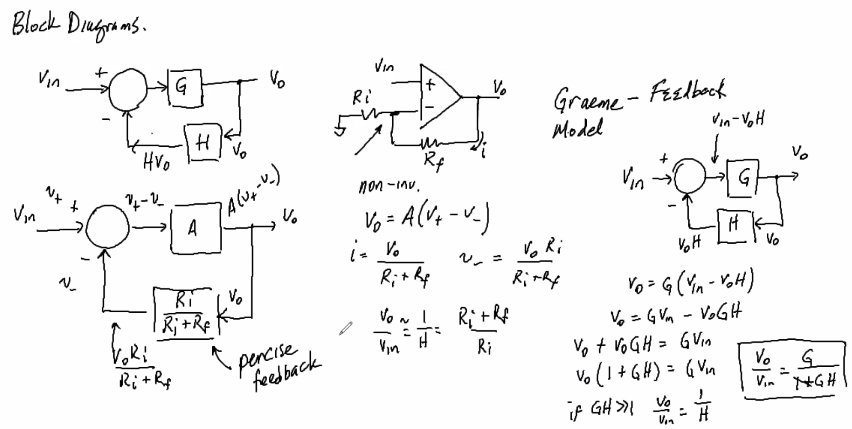 Block Diagrams.
Vin + G Vo
-
H
HVo Vo
Vin v+ + v+-v- A A(v+-v-) Vo
-
v-
Ri / Ri+Rf Vo
VoRi / Ri+Rf
percise
feedback
Vin + Vo
Ri -
Rf i
non-inv.
Vo = A(v+ - v-)
i = Vo / Ri+Rf v- = Vo Ri / Ri+Rf
Vo/Vin ≈ 1/H = Ri+Rf / Ri
Graeme - Feedback
Model
Vin-VoH
Vin + G Vo
-
H
VoH Vo
Vo = G(Vin - VoH)
Vo = GVin - VoGH
Vo + VoGH = GVin
Vo(1+GH) = GVin
if GH>>1 Vo/Vin = 1/H
Vo/Vin = G / 1+GH